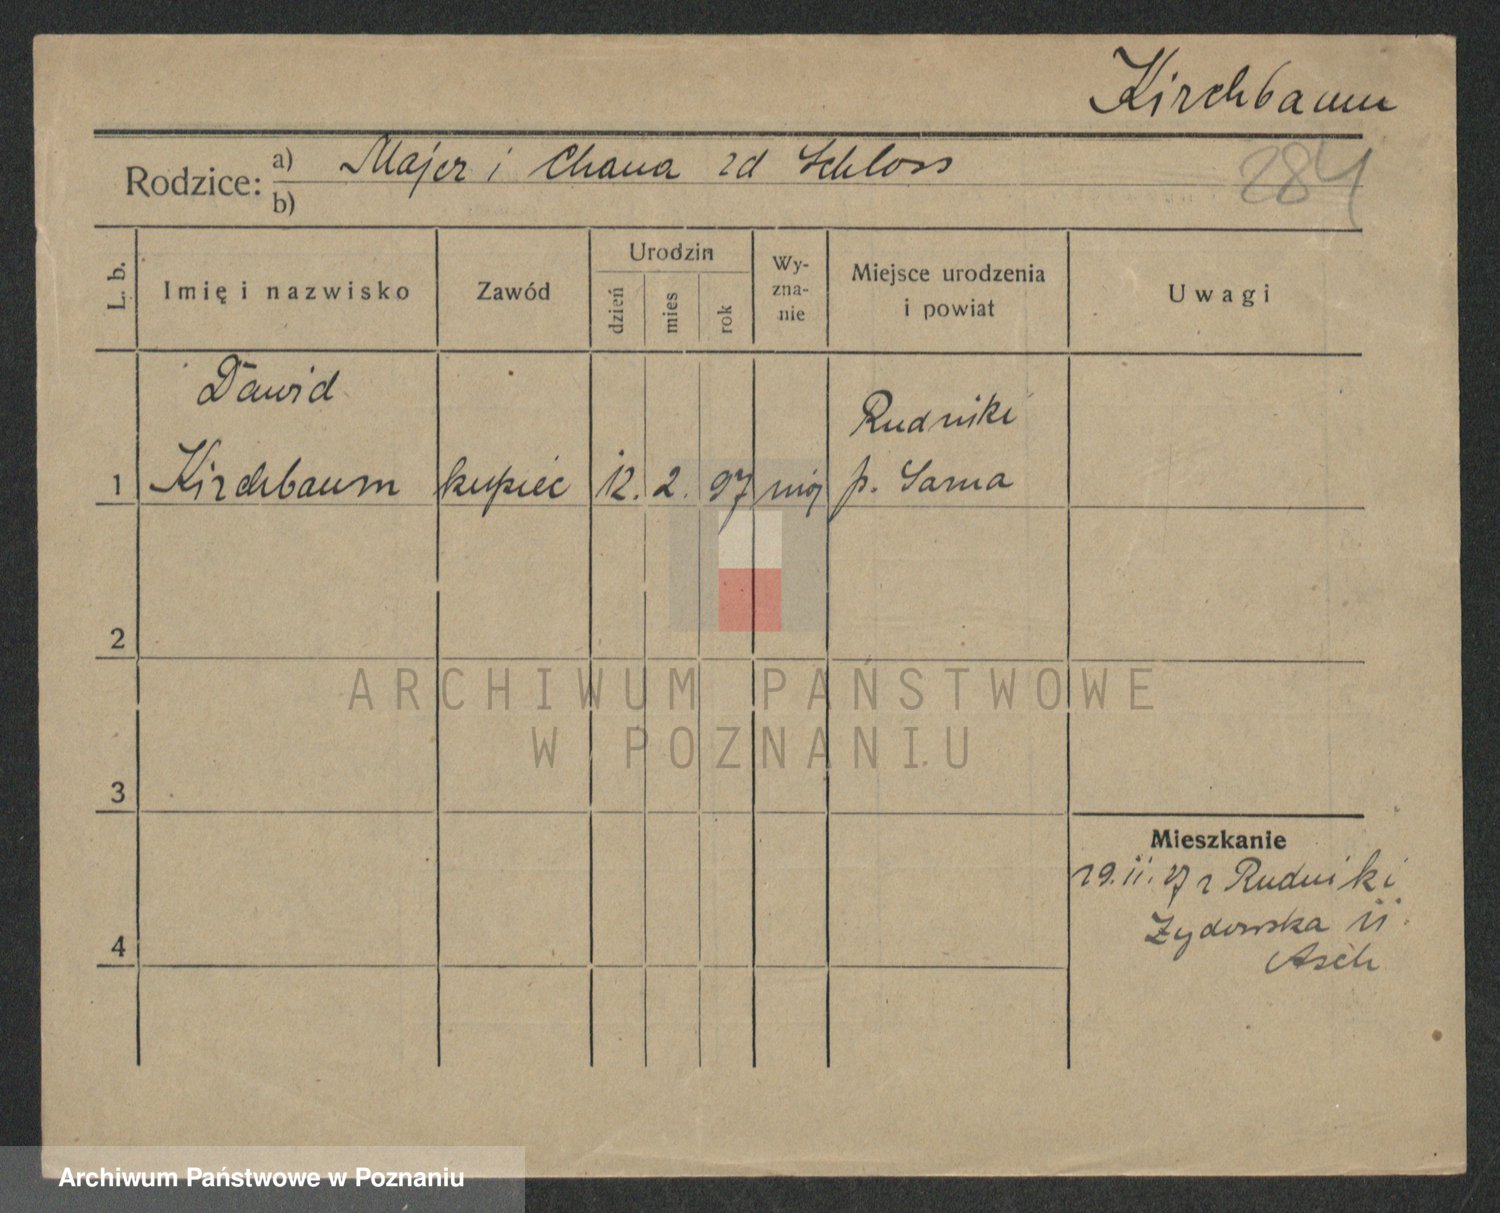 Kirchbaum
Rodzice: a) Majer i Chana zd Schloss
b)
284
L. b.
Imię i nazwisko
Zawód
Urodzin
dzień
mies
rok
Wy-
zna-
nie
Miejsce urodzenia
i powiat
Uwagi
Dawid
Rudniki
1 Kirchbaum kupiec 12. 2. 97 moj p. Sarna
2
3
4
ARCHIWUM PAŃSTWOWE
W POZNANIU
Mieszkanie
19.ii.27 z Rudniki
Żydowska ii.
Asch
Archiwum Państwowe w Poznaniu